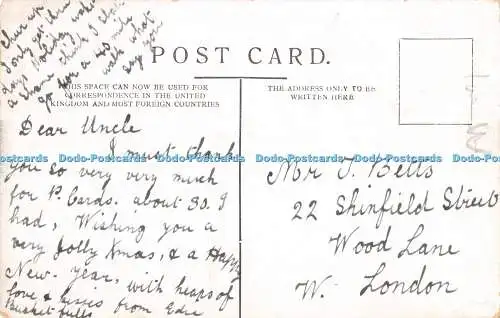 POST CARD.
THIS SPACE CAN NOW BE USED FOR
CORRESPONDENCE IN THE UNITED
KINGDOM AND MOST FOREIGN COUNTRIES
THE ADDRESS ONLY TO BE
WRITTEN HERE
Dear Uncle
I must thank
you so very very much
for P. Cards. about 30. I
had, Wishing you a
very Jolly Xmas, & a Happy
New. Year, with heaps of
love & kisses from Edie
Bucket fulls
Cheer up
I only get three
days holiday
a shame think I shall
go for a 40 mile
walk what
say you
Mr J. Betts
22 Shinfield Street
Wood Lane
W. London
Dodo-Postcards Dodo-Postcards Dodo-Postcards Dodo-Postcards Dodo-Postcards